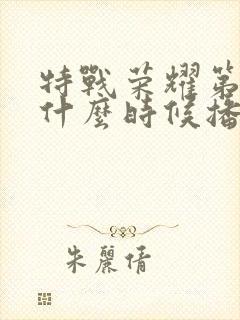 特戰荣耀第
什麼時候播
朱麗倩